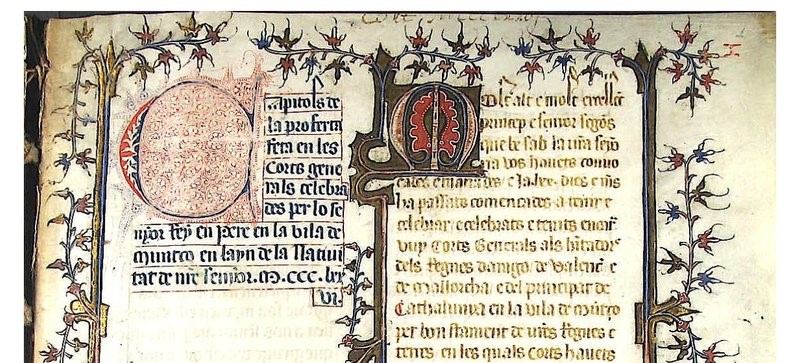 Capitols de
la proferta
feta en les
Corts gene
rals celebra
des per lo se
nyor Rey en Pere en la vila de
Muntço en layn de la Nativi
tat de nre senyor .M.CCC.lxx
vi.
Molt alt e molt excellēt
princep e senyor segōs
que be sab la vra senyo
ria vos havets convo
cades e ja dies e mes
ha passats comencades a tenir e
celebrar e celebrats e tenits encar
vuy Corts Generals als hitadors
dels Regnes darago, de Valenc e
de Mallorcha e del principat de
Cathalunya en la vila de Muntço
per bon stament de vrēs Regnes e
terres en les quals Corts havets